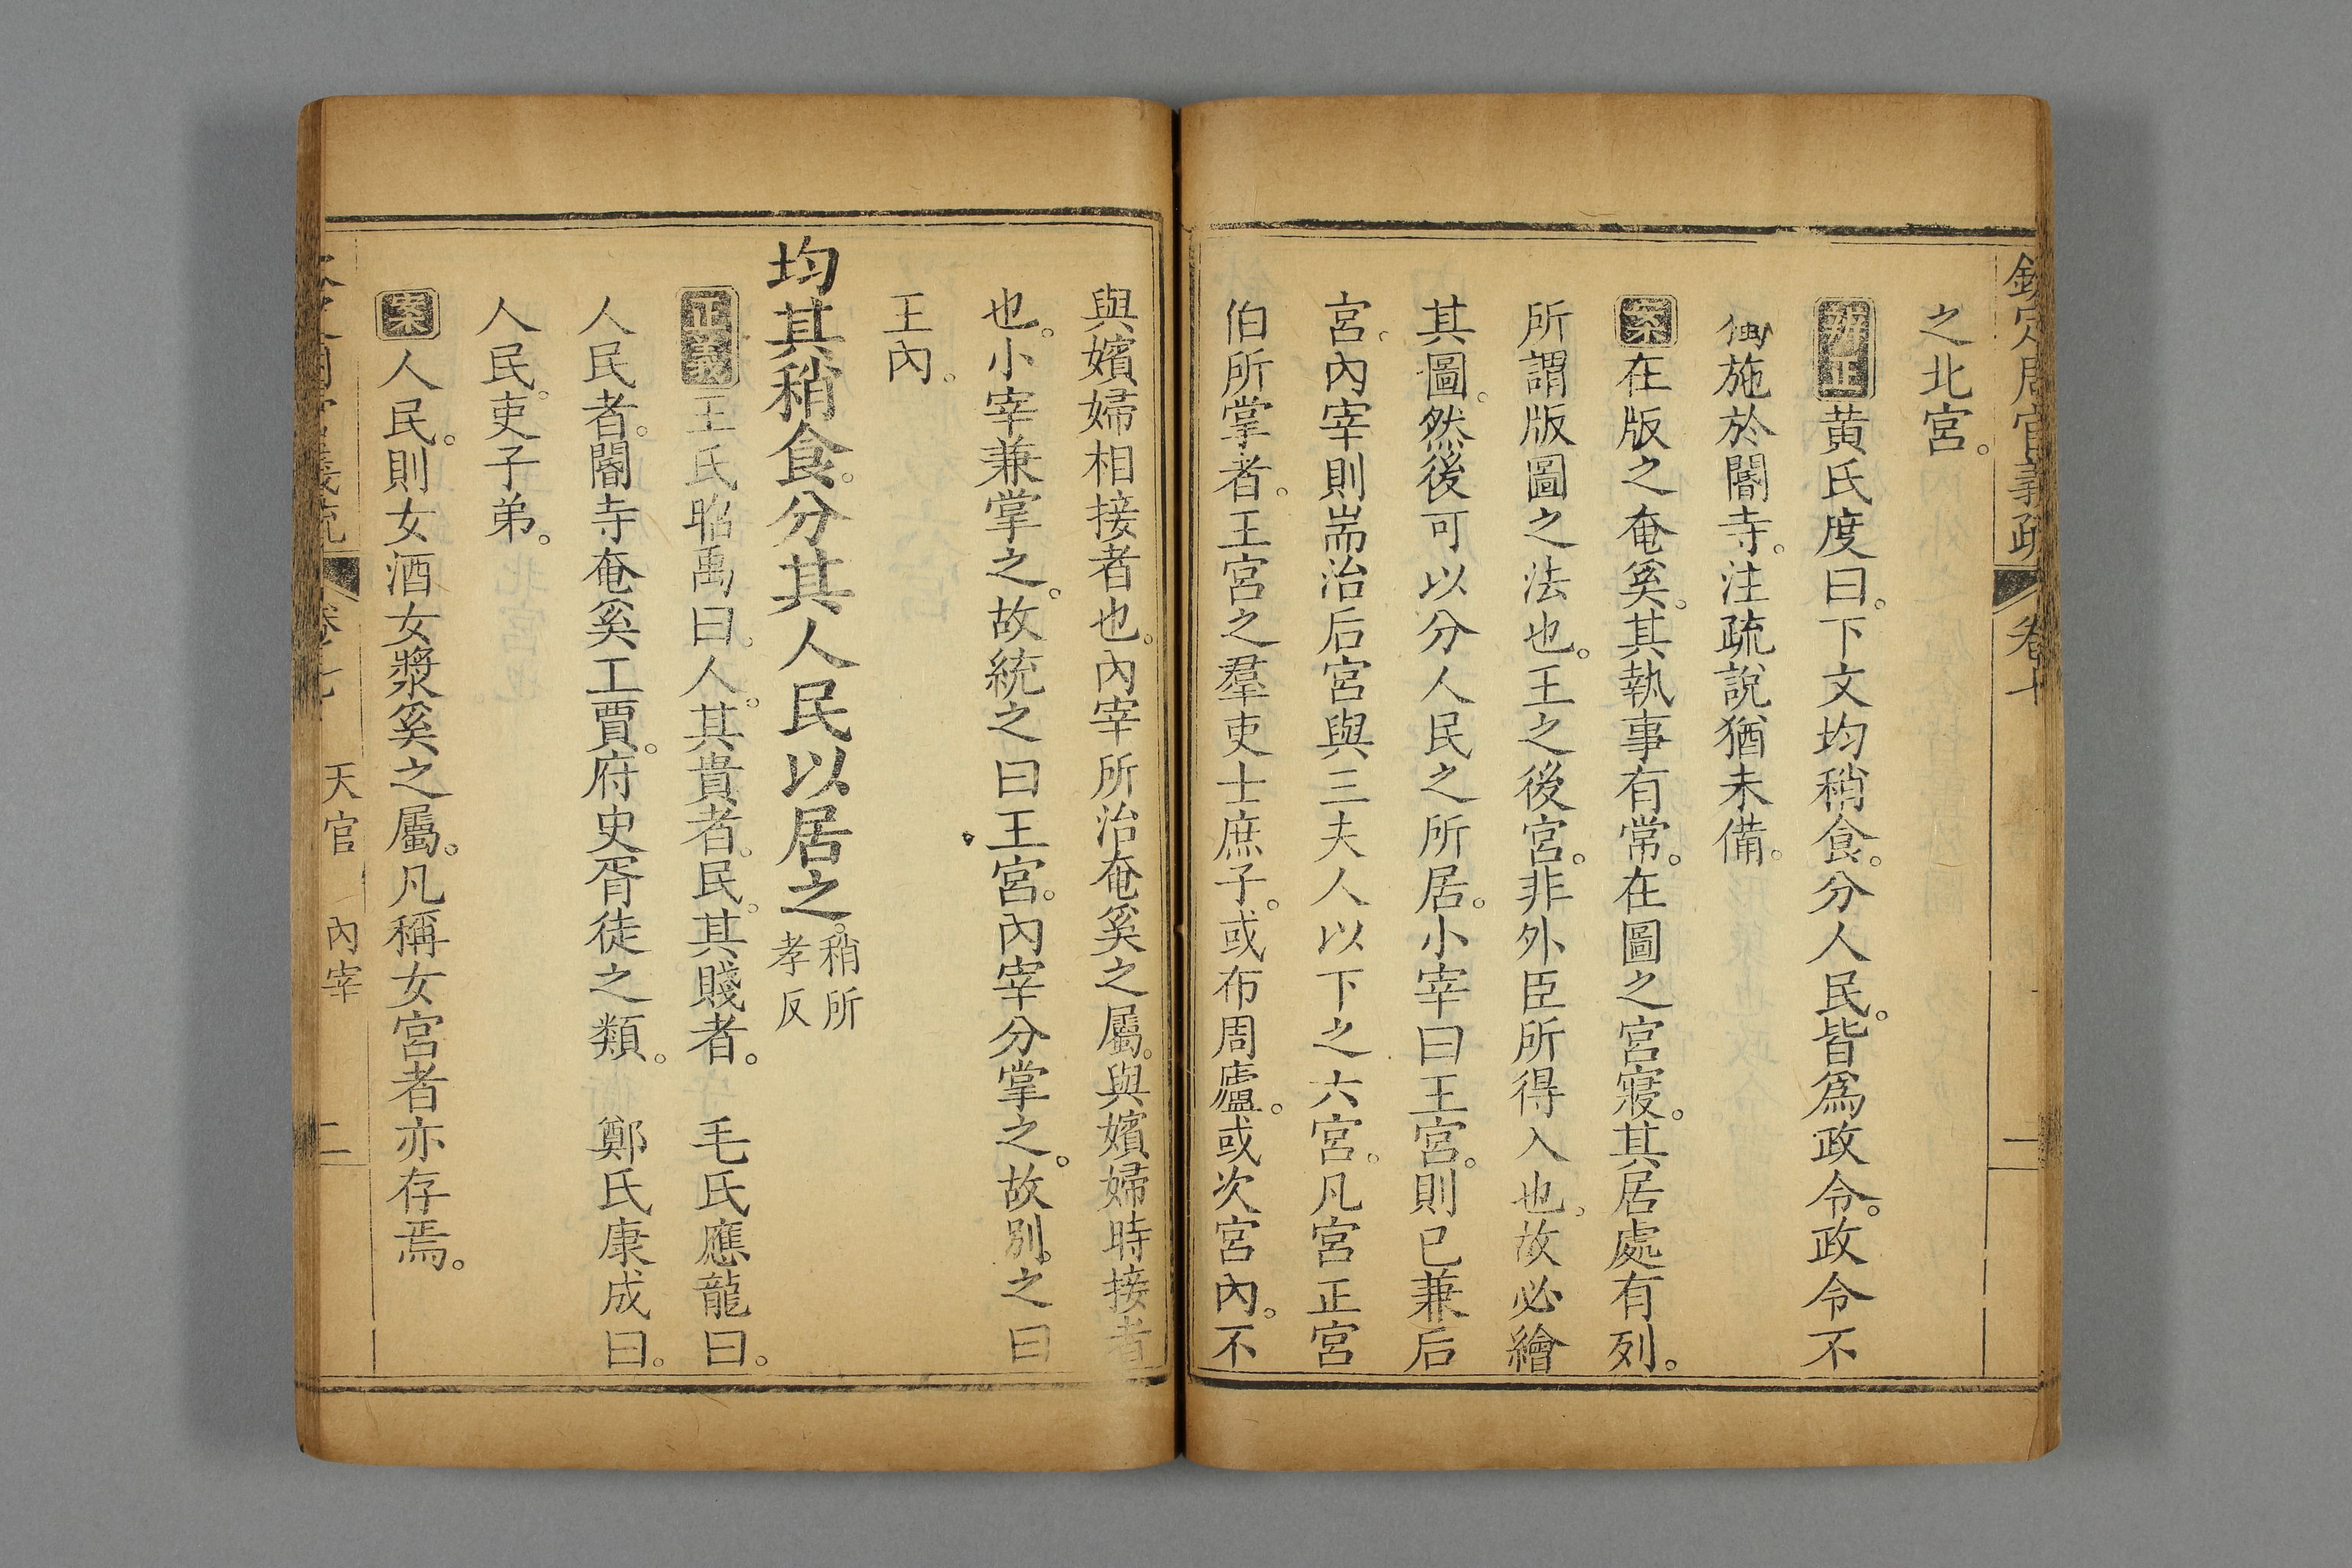 欽定周官義疏 卷七 一
之北宮。
辨正黃氏度曰。下文均稍食。分人民。皆爲政令。政令不
徧施於閽寺。注疏說猶未備。
案在版之奄奚。其執事有常。在圖之宮寢。其居處有列。
所謂版圖之法也。王之後宮。非外臣所得入也。故必繪
其圖。然後可以分人民之所居。小宰曰王宮。則已兼后
宮。內宰則耑治后宮與三夫人以下之六宮。凡宮正宮
伯所掌者。王宮之羣吏士庶子。或布周廬。或次宮內。不
與嬪婦相接者也。內宰所治奄奚之屬。與嬪婦時接者
也。小宰兼掌之。故統之曰王宮。內宰分掌之。故別之曰
王內。
均其稍食。分其人民以居之。稍所
孝反
正義王氏昭禹曰。人。其貴者。民。其賤者。 毛氏應龍曰。
人民者。閽寺奄奚工賈。府史胥徒之類。 鄭氏康成曰。
人民。吏子弟。
案人民。則女酒女漿奚之屬。凡稱女宮者亦存焉。
義疏 卷七 天官 內宰 二